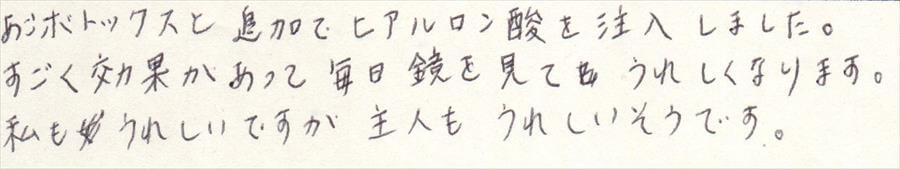 あごボトックスと 追加で ヒアルロン酸を 注入 しました。
すごく 効果が あって 毎日 鏡を 見ても うれしくなります。
私も うれしいですが 主人も うれしいそうです。